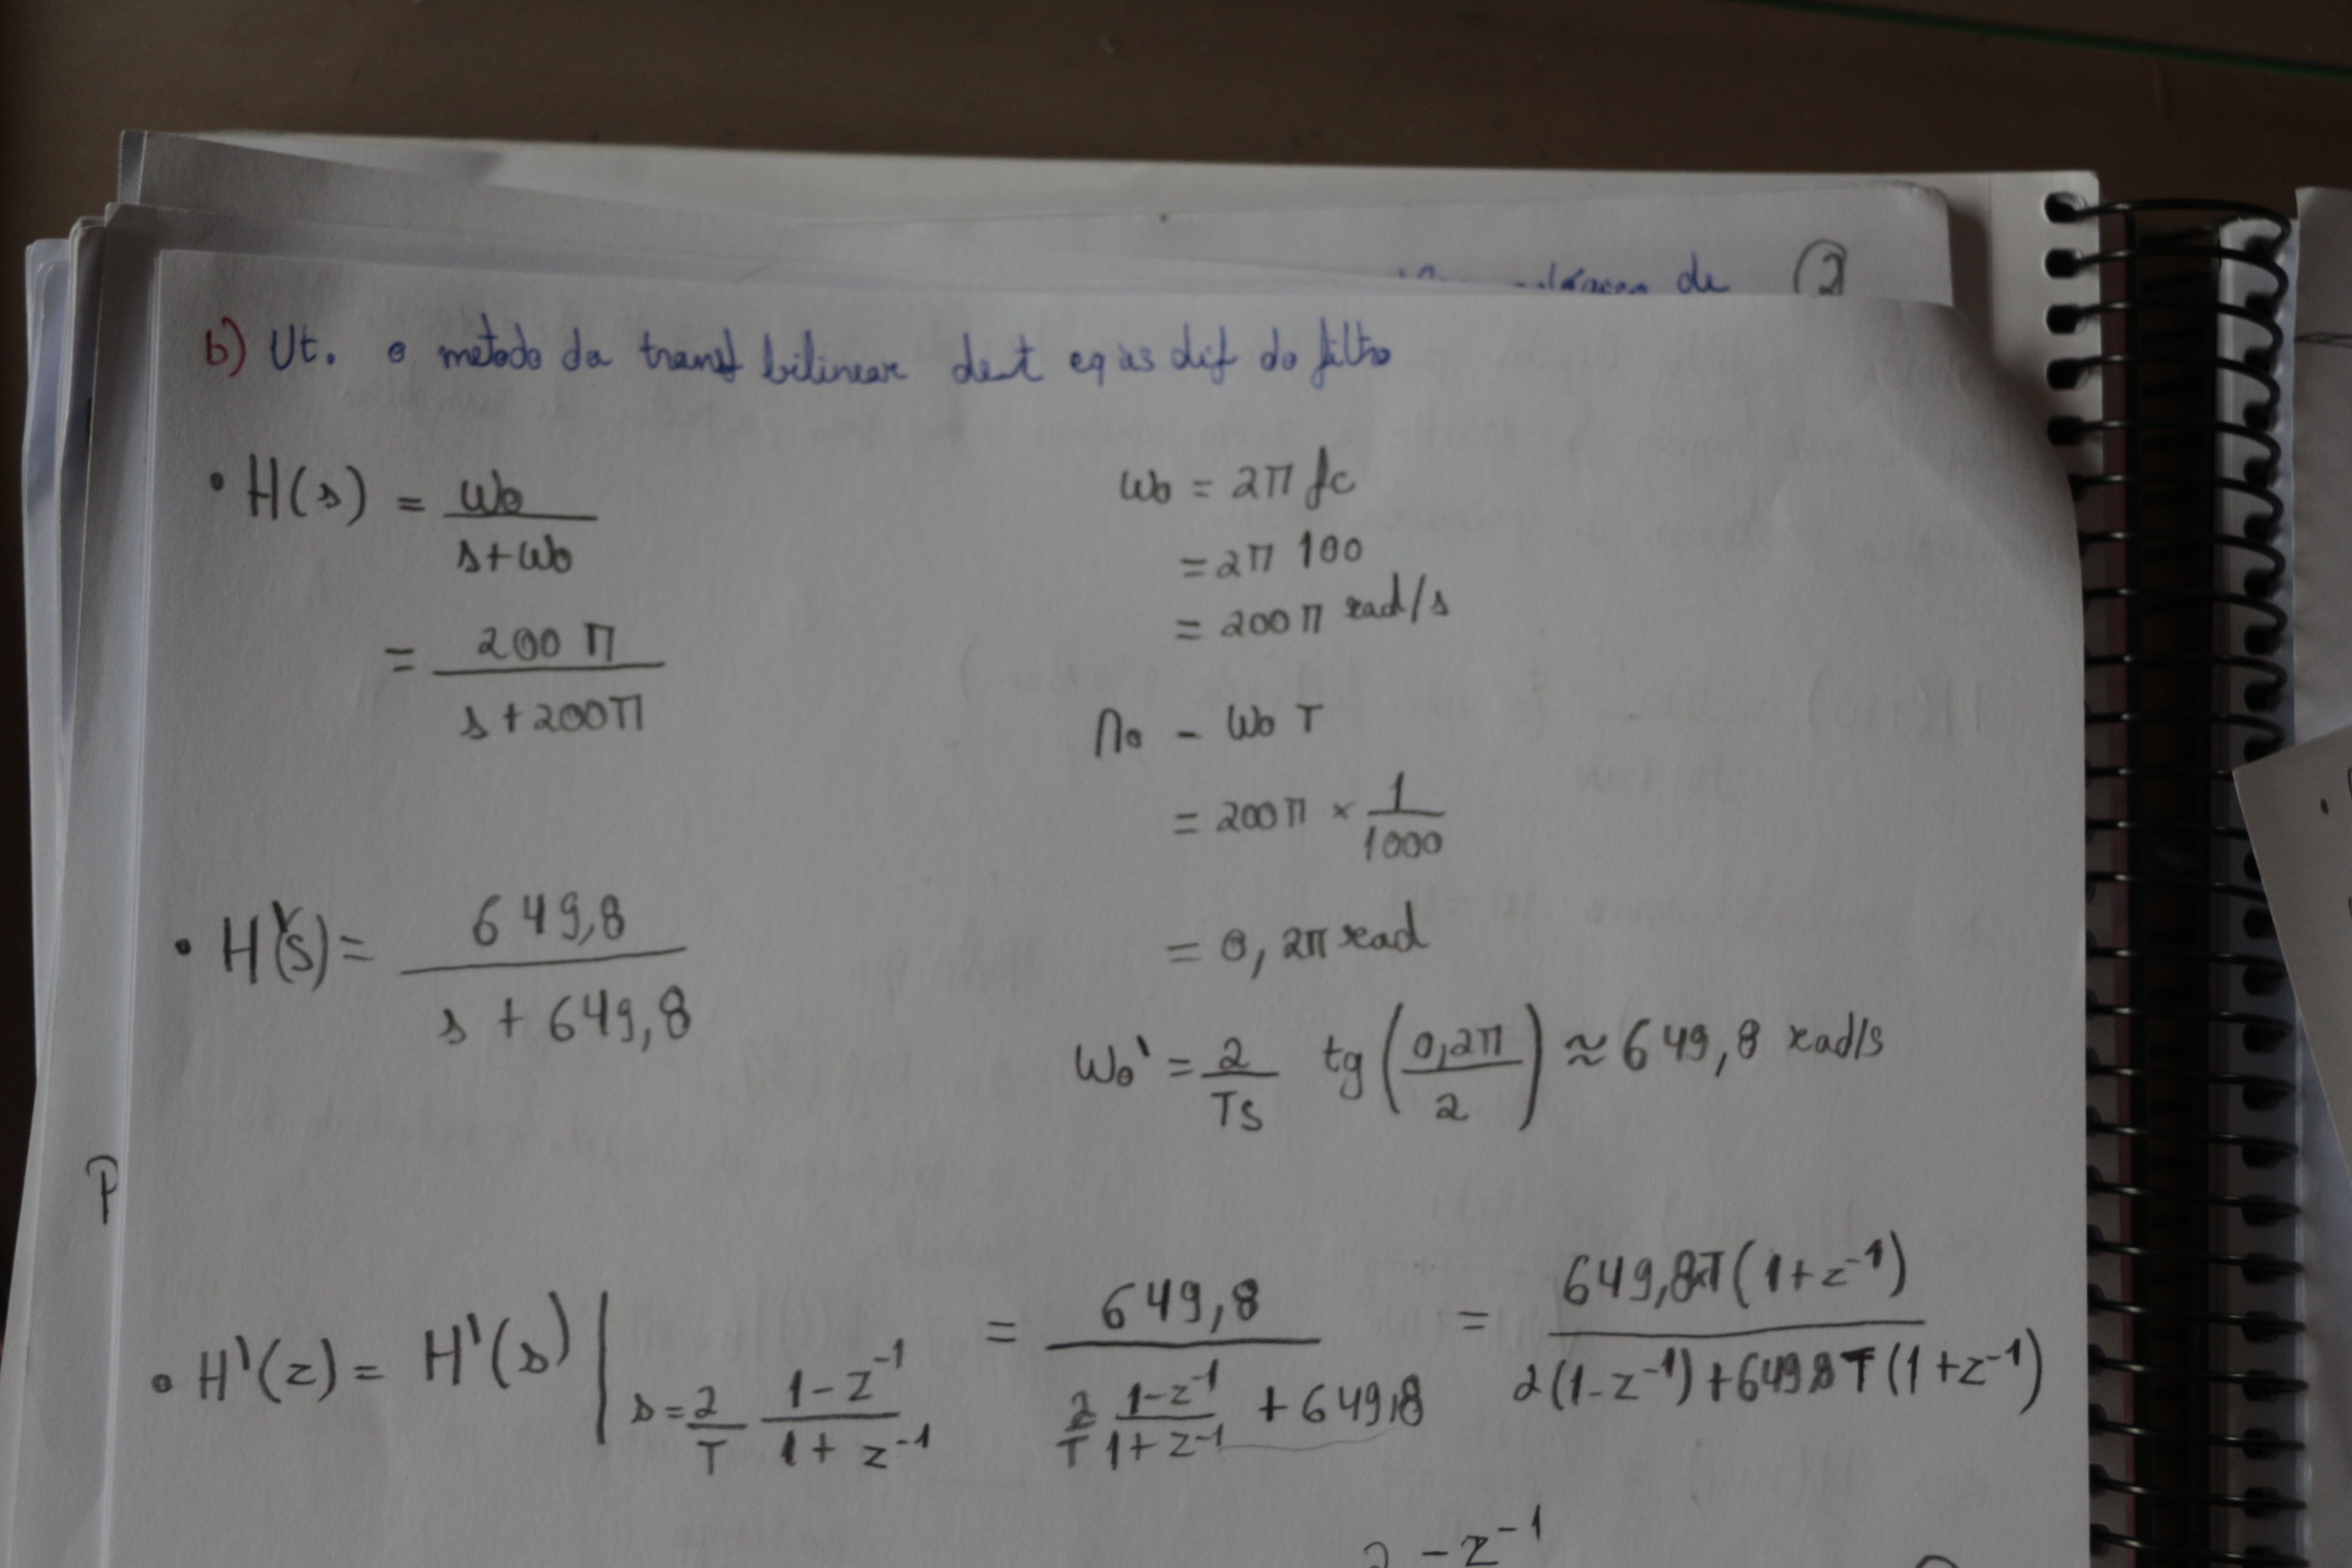 de 2
b) Ut. o metodo da transf bilinear det eq às dif do filtro
• H(s) = ωo / (s+ωo)
= 200π / (s+200π)
ωo = 2π fc
= 2π 100
= 200π rad/s
Ωo - ωo T
= 200π × 1/1000
= 0,2π rad
• H'(s) = 649,8 / (s + 649,8)
ωo' = 2/Ts tg(0,2π/2) ≈ 649,8 rad/s
P
• H'(z) = H'(s) | s = 2/T (1-z⁻¹)/(1+z⁻¹) = 649,8 / (2/T (1-z⁻¹)/(1+z⁻¹) + 649,8) = 649,8T(1+z⁻¹) / (2(1-z⁻¹)+649,8T(1+z⁻¹))
2 - z⁻¹